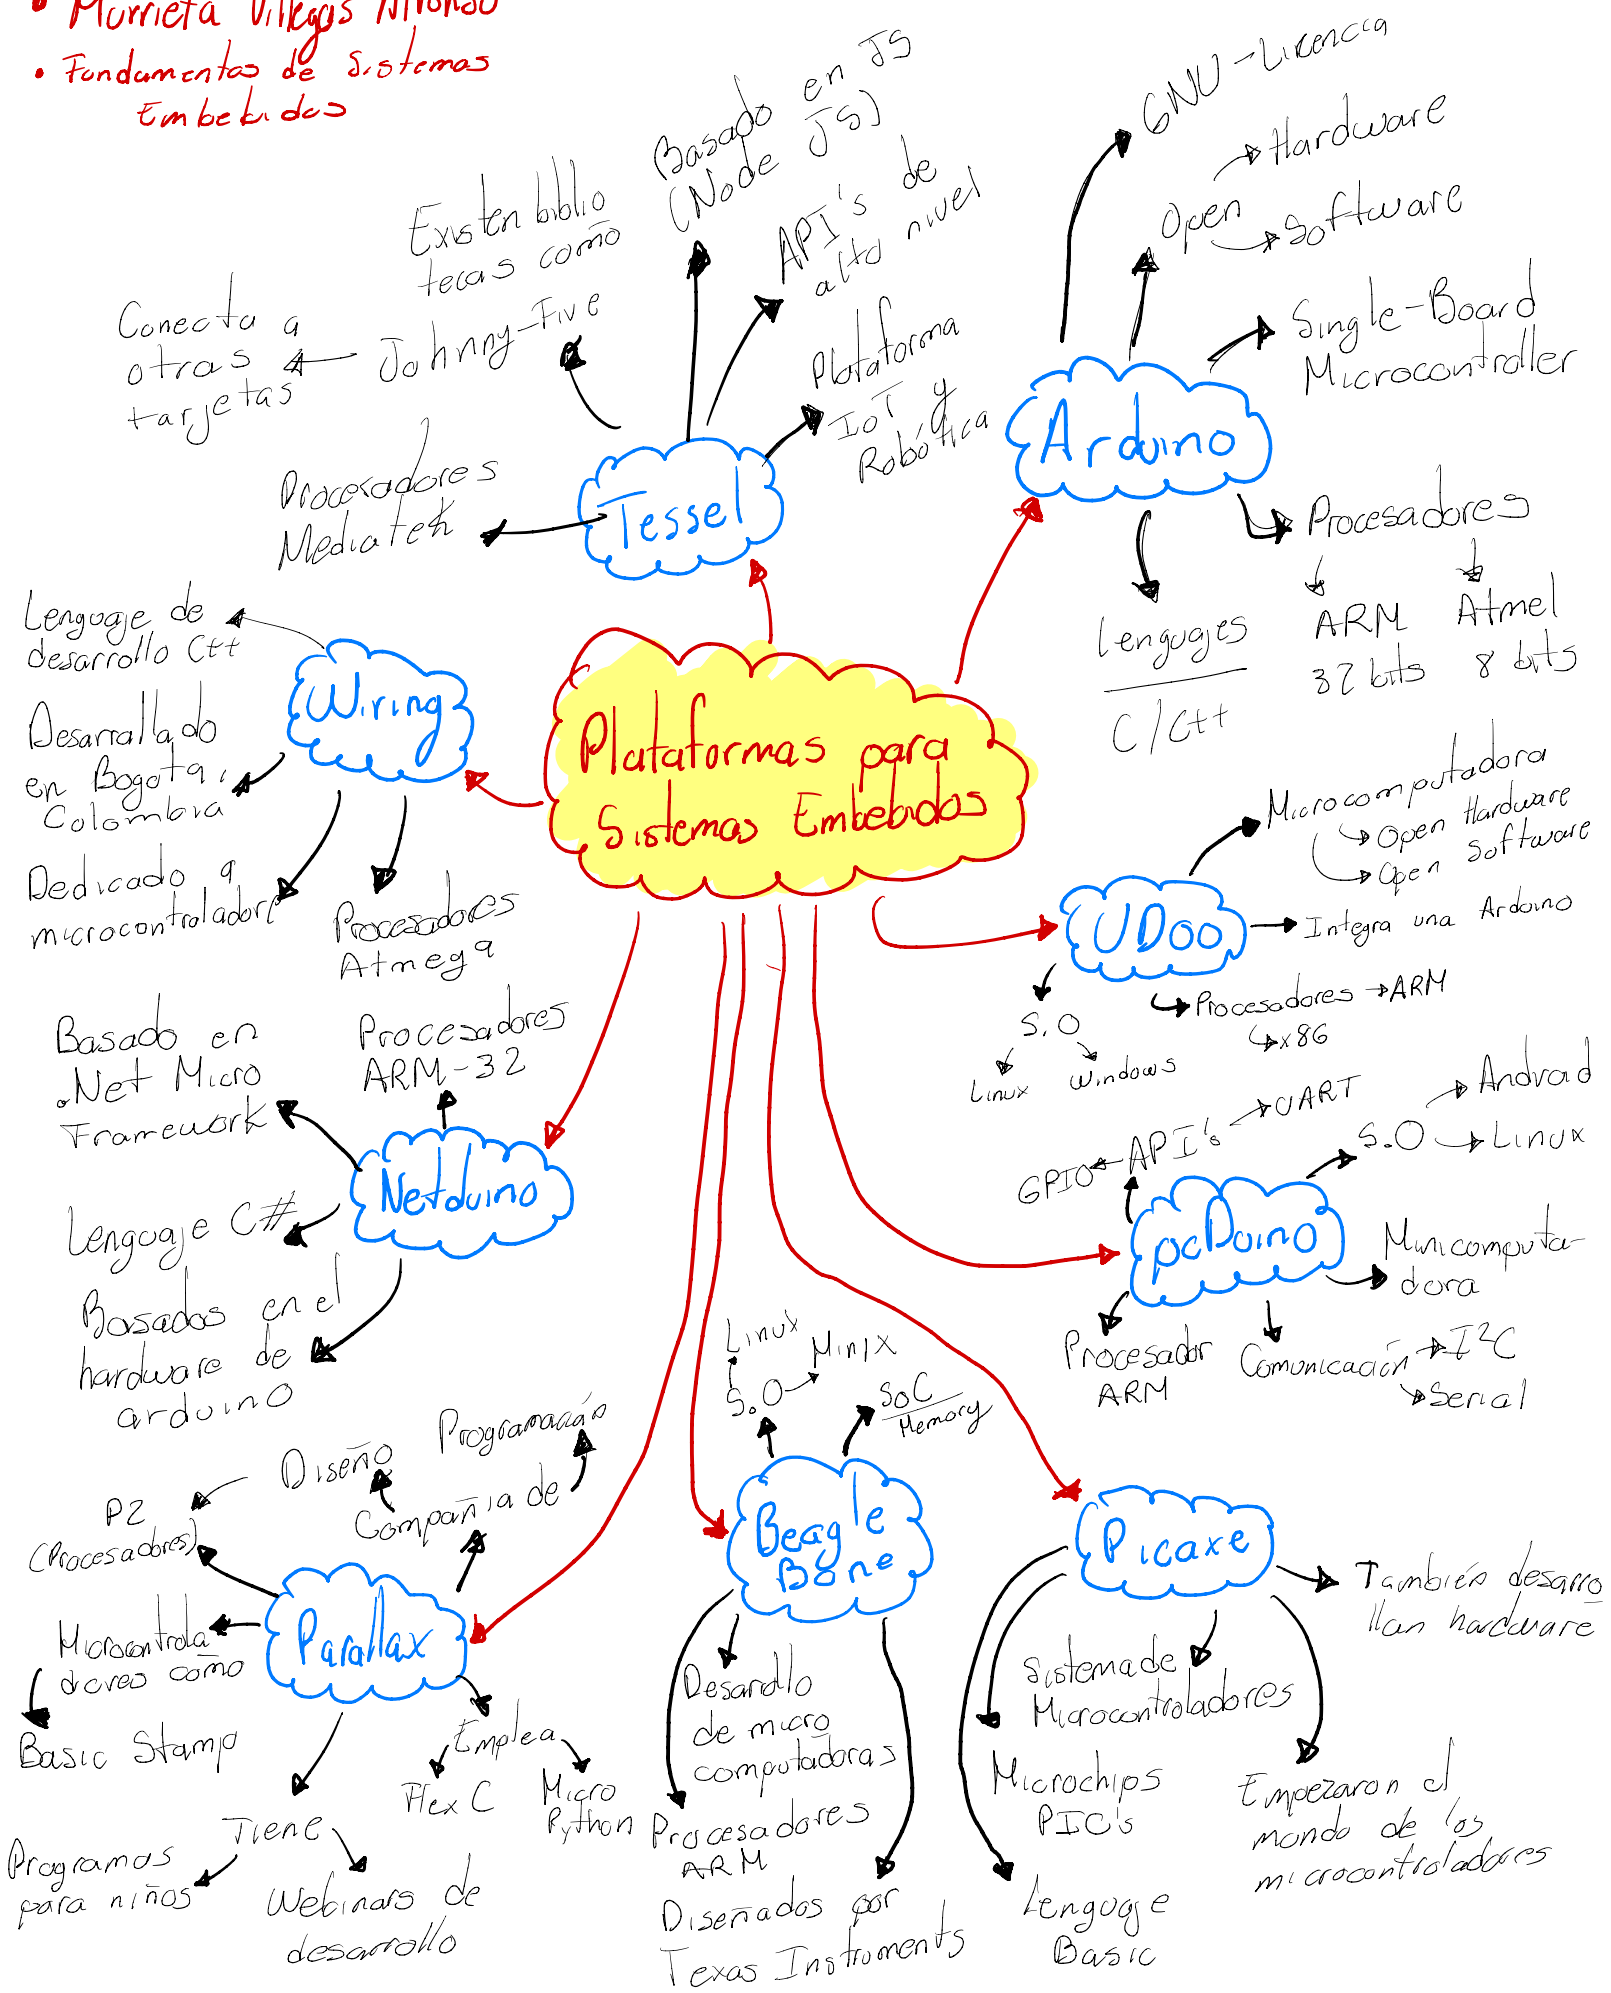 • Murrieta Villegas Alfonso
• Fundamentos de Sistemas
Embebidos
Plataformas para
Sistemas Embebidos
Tessel
Basado en JS
(Node JS)
API's de
alto nivel
Plataforma
IoT y
Robótica
Existen biblio
tecas como
Johnny-Five
Conecta a
otras
tarjetas
Procesadores
Mediatek
Arduino
GNU-Licencia
Open
Hardware
Software
Single-Board
Microcontroller
Procesadores
ARM
32 bits
Atmel
8 bits
Lenguajes
C/C++
Wiring
Lenguaje de
desarrollo C++
Desarrallado
en Bogota,
Colombia
Dedicado a
microcontrolador
Procesadores
Atmega
UDoo
Microcomputadora
Open Hardware
Open Software
Integra una Arduino
Procesadores
ARM
x86
S.O
Linux
Windows
Netduino
Procesadores
ARM-32
Basado en
.Net Micro
Framework
Lenguaje C#
Basados en el
hardware de
arduino
pcDuino
API's
UART
GPIO
S.O
Android
Linux
Minicomputa-
dora
Comunicación
I2C
Serial
Procesador
ARM
Parallax
Compañia de
Diseño
Programación
P2
(Procesadores)
Microcontrola
dores como
Basic Stamp
Tiene
Programas
para niños
Webinars de
desarrollo
Emplea
Flex C
Micro
Python
Beagle
Bone
S.O
Linux
Minix
SoC
Memory
Desarollo
de micro
computadoras
Procesadores
ARM
Diseñados por
Texas Instruments
Picaxe
También desarro
llan hardware
Sistema de
Microcontroladores
Microchips
PIC's
Empezaron el
mondo de los
microcontroladores
Lenguaje
Basic